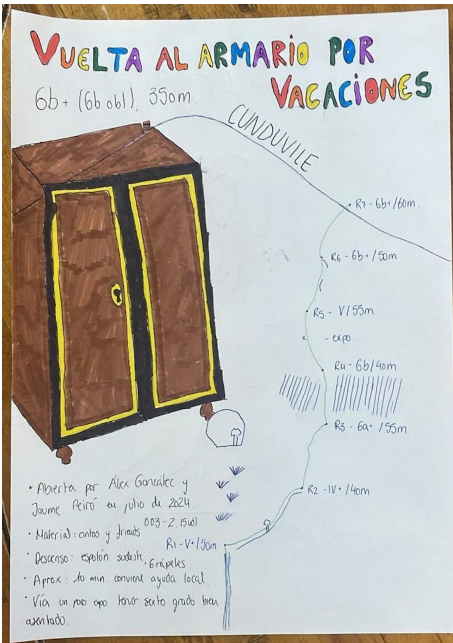 VUELTA AL ARMARIO POR
VACACIONES
6b+ (6b obl), 350m.
CUNDUVILE
R7-6b+/60m.
R6-6b+/50m
R5-V/55m
x -expo.
R4-6b/40m
R3-6a+/55m
R2-IV+/40m
R1-V+/50m
• Abierta por Alex González y
Jaume Peiró en julio de 2024
• Material: cintas y friends
0.03-2. (5 ul)
• Descenso: espolón sudeste.
• 6 rápeles
• Aprox: min conviene ayuda local.
• Vía un poco expo. tener sexto grado bien
asentado.